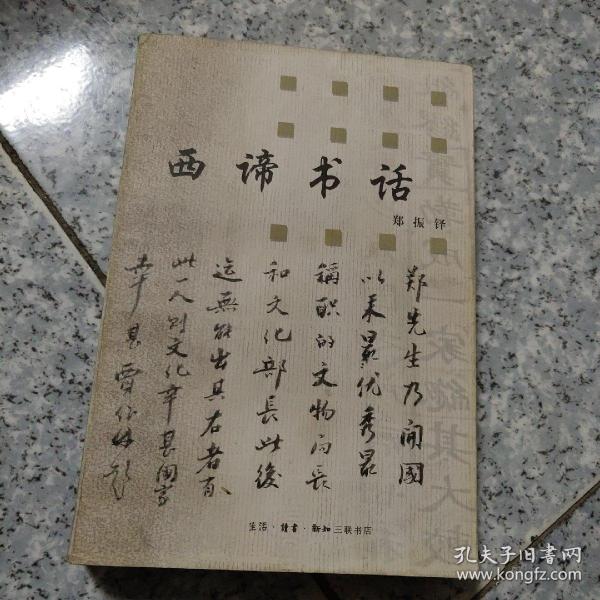 西谛书话
郑振铎
郑先生乃开國
以来最优秀最
稱职的文物局長
和文化部長此後
迄無能出其右者有
此一人则文化幸甚国家
幸甚
生活·讀書·新知三联书店
孔夫子旧书网
www.kongfz.com